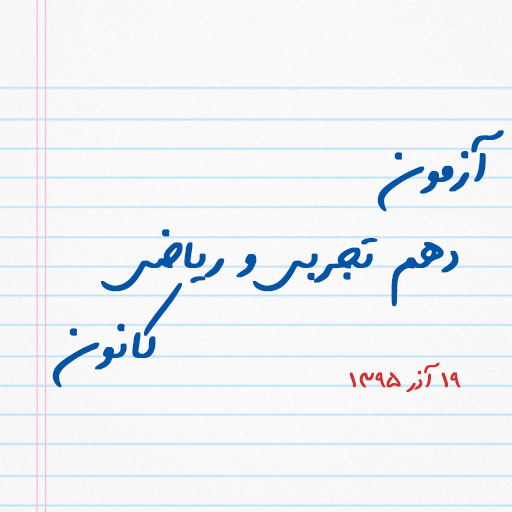 آزمون
دهم تجربی و ریاضی
کانون
۱۹ آذر ۱۳۹۵